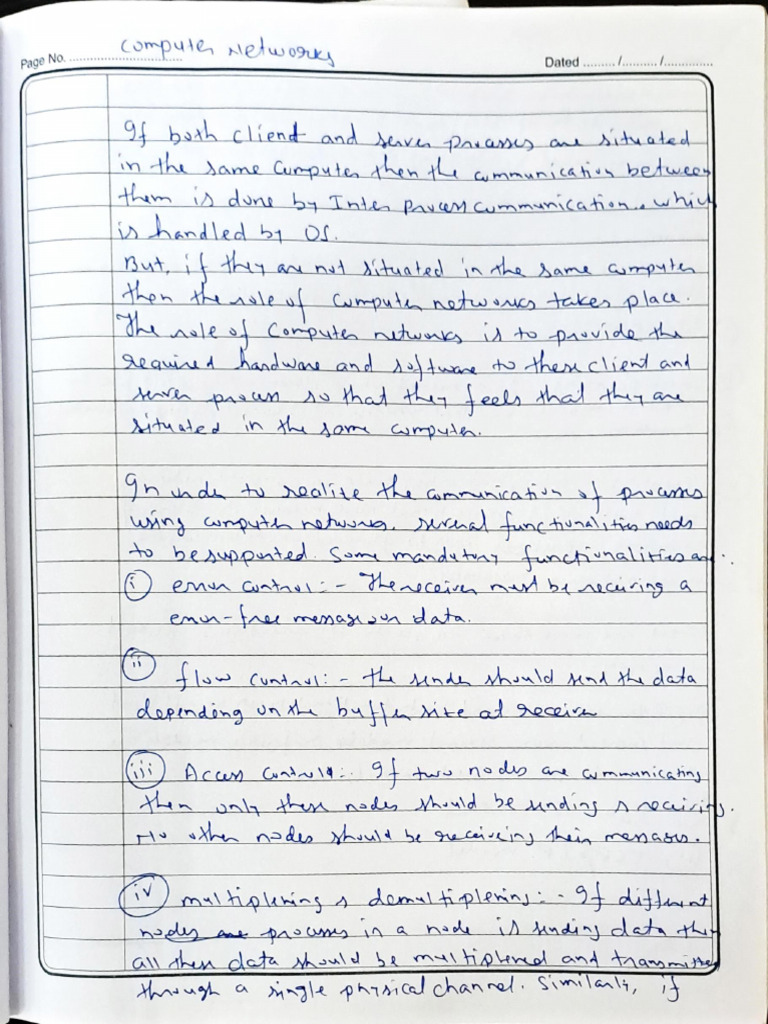 Computer Networks
Page No. .................................
Dated ........./........./.............
If both client and server processes are situated
in the same Computer then the communication between
them is done by Inter process communication. which
is handled by OS.
But, if they are not situated in the same computer
then the role of Computer networks takes place.
The role of Computer networks is to provide the
required hardware and software to these client and
server process so that they feels that they are
situated in the same computer.
In order to realize the communication of processes
using computer networks. several functionalities needs
to be supported. Some mandatory functionalities are :
(i) error control :- The receiver must be receiving a
error-free message or data.
(ii) flow control :- the sender should send the data
depending on the buffer size at receiver
(iii) Access control :- If two nodes are communicating
then only these nodes should be sending & receiving.
No other nodes should be receiveing their messages.
(iv) multiplexing & demultiplexing :- If different
nodes are processes in a node is sending data then
all these data should be multiplexed and transmitted
through a single physical channel. Similarly, if